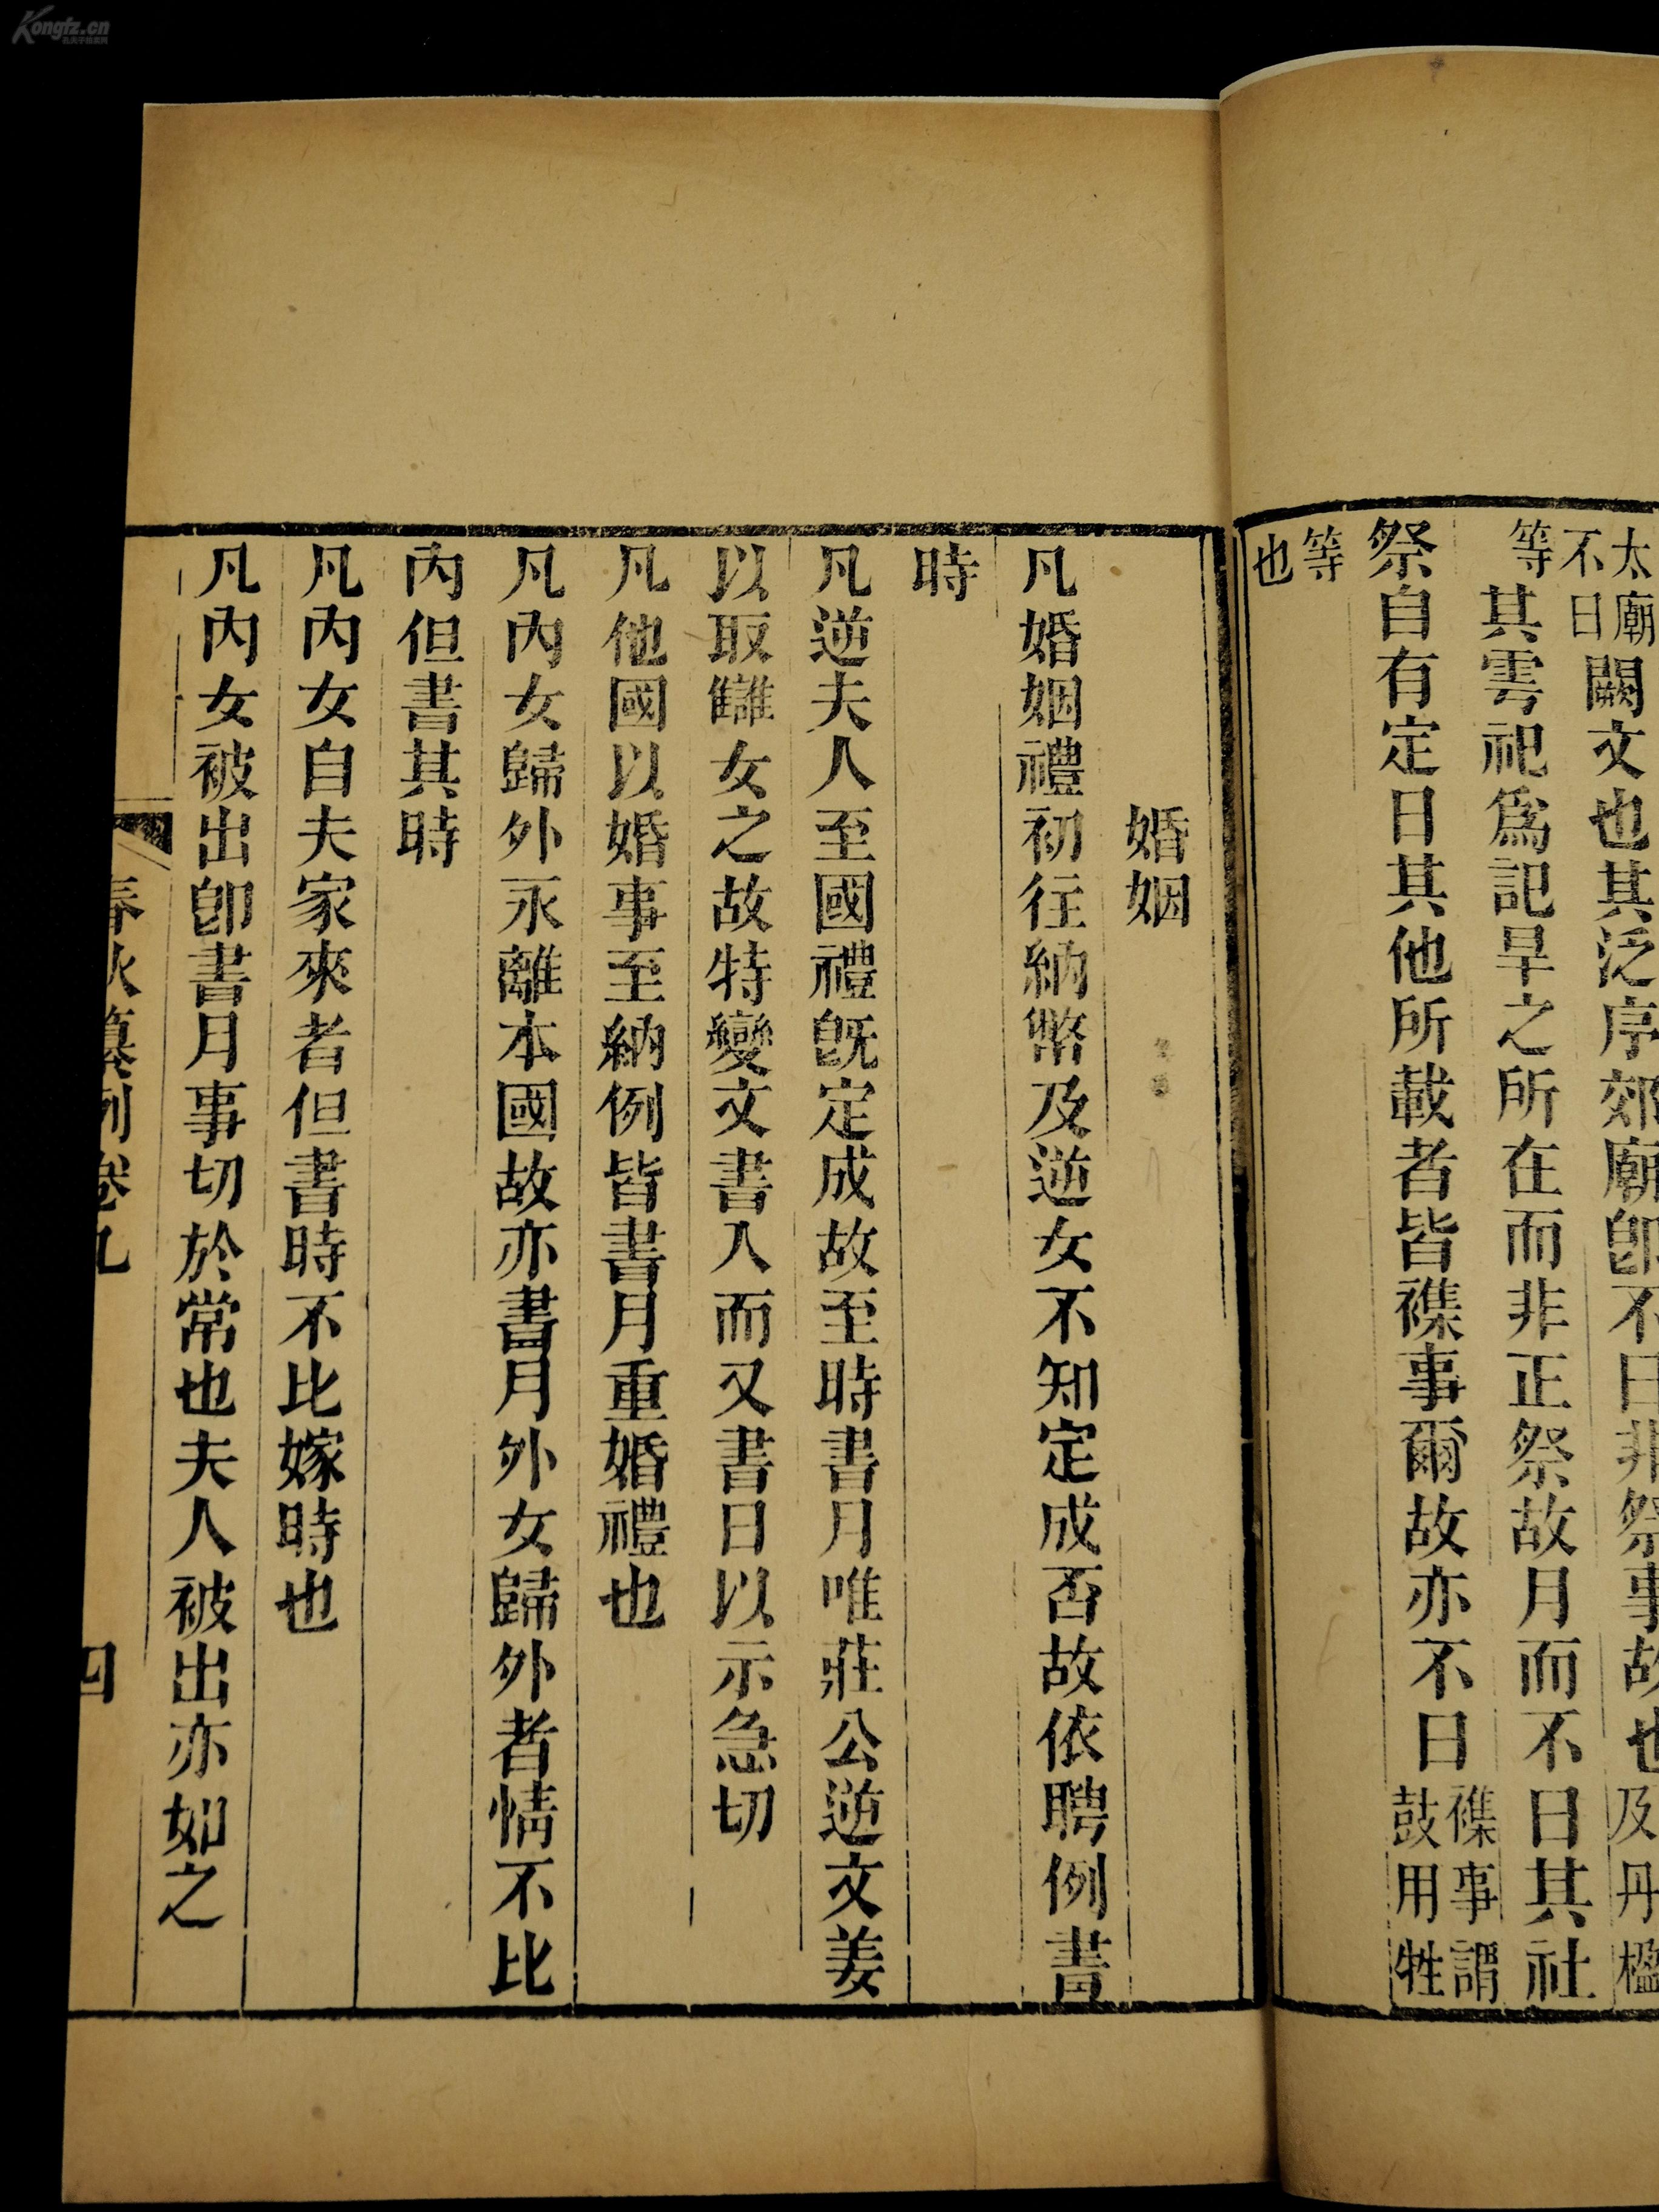 太廟
不日
闕文也其泛序郊廟卽不日非祭事故也
及丹楹
等
其雩祀爲記旱之所在而非正祭故月而不日其社
祭自有定日其他所載者皆襍事爾故亦不日
襍事謂
鼓用牲
等
也
婚姻
凡婚姻禮初往納幣及逆女不知定成否故依聘例書
時
凡逆夫人至國禮既定成故至時書月唯莊公逆文姜
以取讎女之故特變文書入而又書日以示急切
凡他國以婚事至納例皆書月重婚禮也
凡內女歸外永離本國故亦書月外女歸外者情不比
內但書其時
凡內女自夫家來者但書時不比嫁時也
凡內女被出卽書月事切於常也夫人被出亦如之
春秋纂例卷九
四
Kongfz.cn
孔夫子舊書网